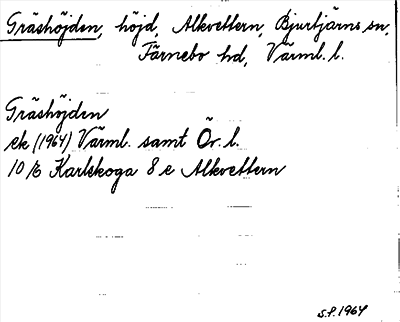 Gräshöjden, höjd, Alkvettern, Bjurtjärns sn,
Färnebo hd, Värml. l.
Gräshöjden
ek (1964) Värml. samt Ör. l.
10 E Karlskoga 8 e Alkvettern
S.P. 1964